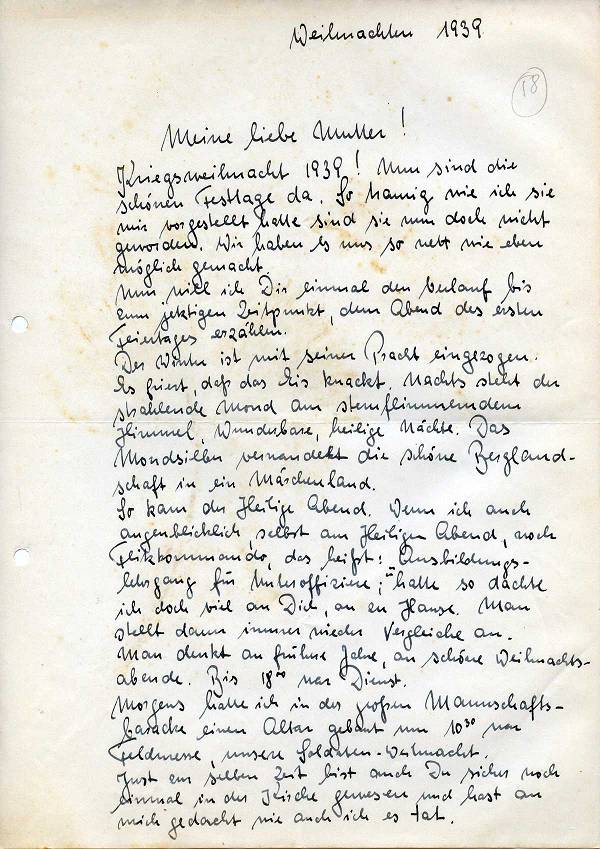 Weihnachten 1939
58
Meine liebe Mutter!
Kriegsweihnacht 1939! Nun sind die
schönen Festtage da. So traurig wie ich sie
mir vorgestellt hatte sind sie nun doch nicht
geworden. Wir haben es uns so nett wie eben
möglich gemacht.
Nun will ich Dir einmal den Verlauf bis
zum jetztigen Zeitpunkt, dem Abend des ersten
Feiertages erzählen.
Der Winter ist mit seiner Pracht eingezogen.
Es friert, daß das Eis knackt. Nachts steht der
strahlende Mond am sternflimmerndem
Himmel, Wunderbare, heilige Nächte. Das
Mondsilber verwandelt die schöne Bergland-
schaft in ein Märchenland.
So kam der Heilige Abend. Wenn ich auch
augenblicklich, selbst am Heiligen Abend, noch
das heißt: Ausbildungs-
lehrgang für Unteroffiziere, hatte so dachte
ich doch viel an Dich, an zu Hause. Man
stellt dann immer wieder Vergleiche an.
Man denkt an frühere Jahre, an schöne Weihnachts-
abende. Bis 18⁰⁰ war Dienst.
Morgens hatte ich in der großen Mannschafts-
baracke einen Altar gebaut um 10³⁰ war
Feldmesse, unsere Soldaten-Weihnacht.
Just zur selben Zeit bist auch Du sicher noch
einmal in der Kirche gewesen und hast an
mich gedacht wie auch ich es tat.